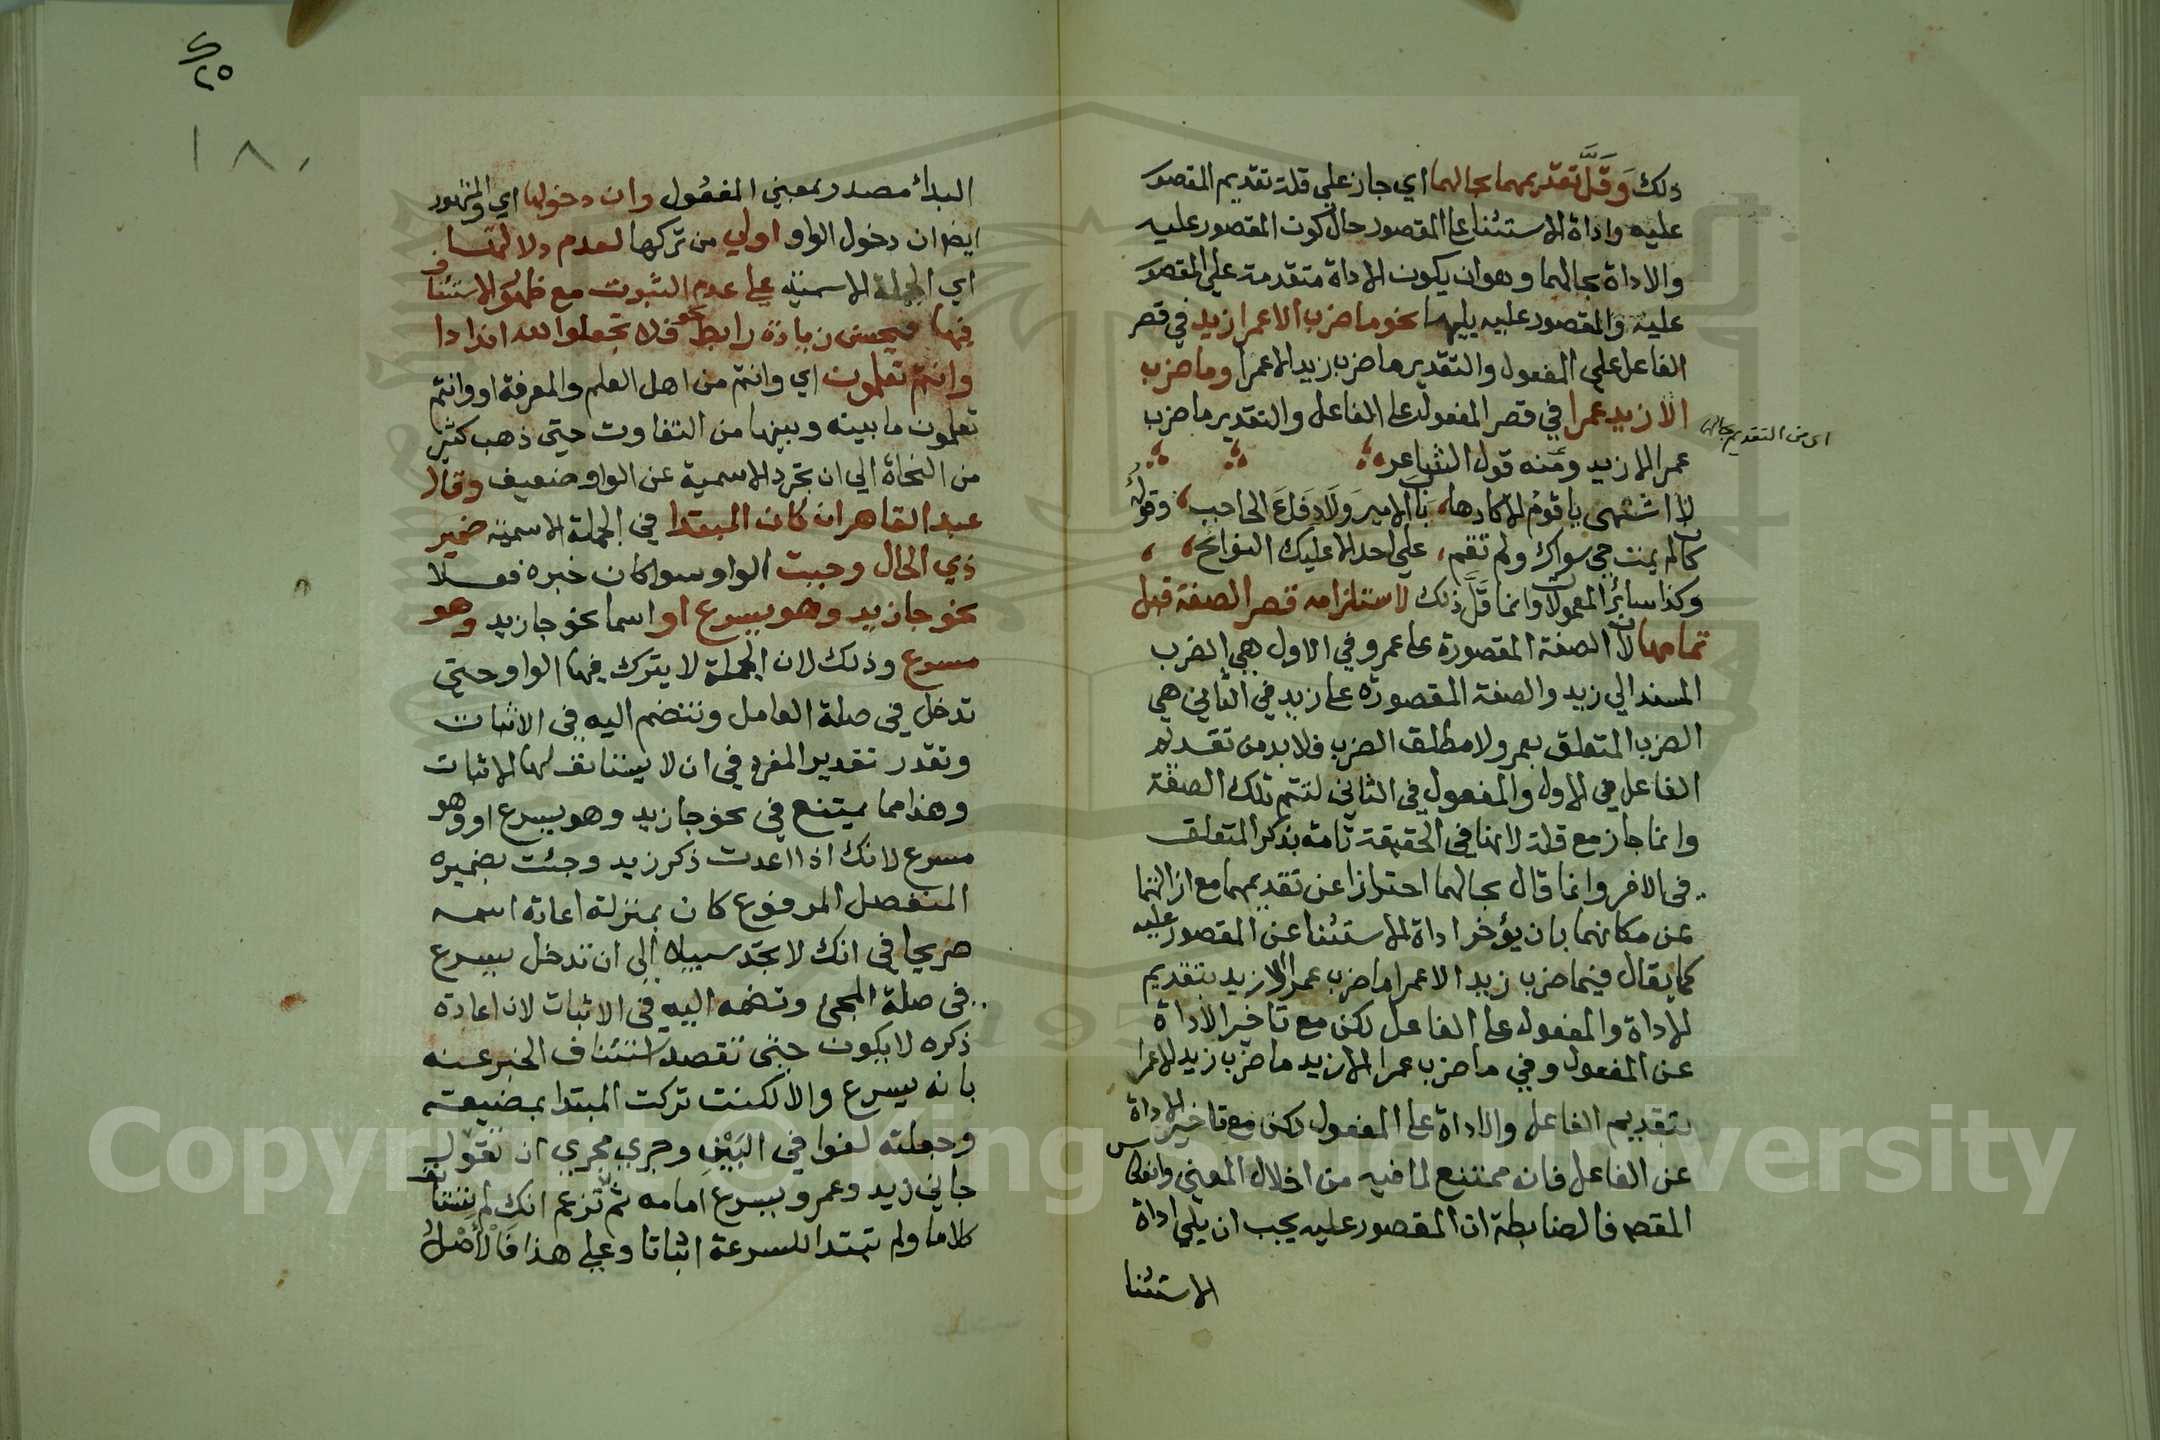 ذلك وَقَلَّ تقديمهما بحالهما اي جاز علي قلة تقديم المقصور
عليه واداة الاستثنا علي المقصور حال كون المقصور عليه
والاداة بحالهما وهو ان يكون الاداة متقدمة علي المقصور
عليه والمقصور عليه يليها نحو ما ضرب الا عمرا زيد في قصر
الفاعل علي المفعول والتقدير ما ضرب زيد الا عمرا وما ضرب
الا زيد عمرا في قصر المفعول علي الفاعل والتقدير ما ضرب
اي من التقديم بحالهما
عمرا الا زيد ومنه قول الشاعر
لا اشتهي يا قوم الا كارها، باب الامير وَلَا دِفَاعَ الحاجب، وقوله
كان لم يمت حي سواك ولم تقم، علي احد الا عليك النوائح،
وكذا سائر المعمولات وانما قَلَّ ذلك لاستلزامه قصر الصفة قبل
تمامها لان الصفة المقصورة علي عمرو في الاول هي الضرب
المسند الي زيد والصفة المقصورة علي زيد في الثاني هي
الضرب المتعلق بعمرو لا مطلق الضرب فلابد من تقديم
الفاعل في الاول والمفعول في الثاني لتتم تلك الصفة
وانما جاز مع قلة لانها في الحقيقة تامة بذكر المتعلق
في الاخر وانما قال بحالهما احترازا عن تقديمهما مع ازالتهما
عن مكانهما بان يؤخر اداة الاستثنا عن المقصور عليه
كما يقال في ما ضرب زيد الا عمرا ما ضرب عمرا الا زيد بتقديم
الاداة والمفعول علي الفاعل لكن مع تاخير الاداة
عن المفعول وفي ما ضرب عمرا الا زيد ما ضرب زيد الا عمرا
بتقديم الفاعل والاداة علي المفعول لكن مع تاخير الاداة
عن الفاعل فانه ممتنع لما فيه من اخلال المعني وانعكاس
المقصد فالضابطة ان المقصور عليه يجب ان يلي اداة
الاستثنا
٢٥
١٨٠
البدائ مصدر بمعني المفعول وان دخولها اي والمشهور
ايضا ان دخول الواو اولي من تركها لعدم دلالتها
اي الجملة الاسمية علي عدم الثبوت مع ظهور الاستئناف
فيها فيحسن زيادة رابط نحو فلا تجعلوا لله اندادا
وانتم تعلمون اي وانتم من اهل العلم والمعرفة او وانتم
تعلمون ما بينه وبينها من التفاوت حتي ذهب كثير
من النحاة الي ان تجرد الاسمية عن الواو ضعيف وقال
عبد القاهر ان كان المبتدا في الجملة الاسمية ضمير
ذي الحال وجبت الواو سوا كان خبره فعلا
نحو جا زيد وهو يسرع او اسما نحو جا زيد وهو
مسرع وذلك لان الجملة لا يترك فيها الواو حتي
تدخل في صلة العامل وتنضم اليه في الاثبات
وتقدر تقدير المفرد في ان لا يستانف لها الاثبات
وهذا مما يمتنع في نحو جا زيد وهو يسرع او وهو
مسرع لانك اذا اعدت ذكر زيد وجئت بضميره
المنفصل المرفوع كان بمنزلة اعادة اسمه
صريحا في انك لا تجد سبيلا الي ان تدخل يسرع
في صلة المجئ وتضمه اليه في الاثبات لان اعادة
ذكره لا يكون حتي تقصد استئناف الخبر عنه
بانه يسرع والا لكنت تركت المبتدا بمضيعة
وجعلته لغوا في البَيْنِ وجري مجري ان تقول
جاني زيد وعمرو يسرع امامه ثم تزعم انك لم تستانف
كلاما ولم تبتدا للسرعة اثباتا وعلي هذا فَالْأَصْلُ
Copyright © King Saud University